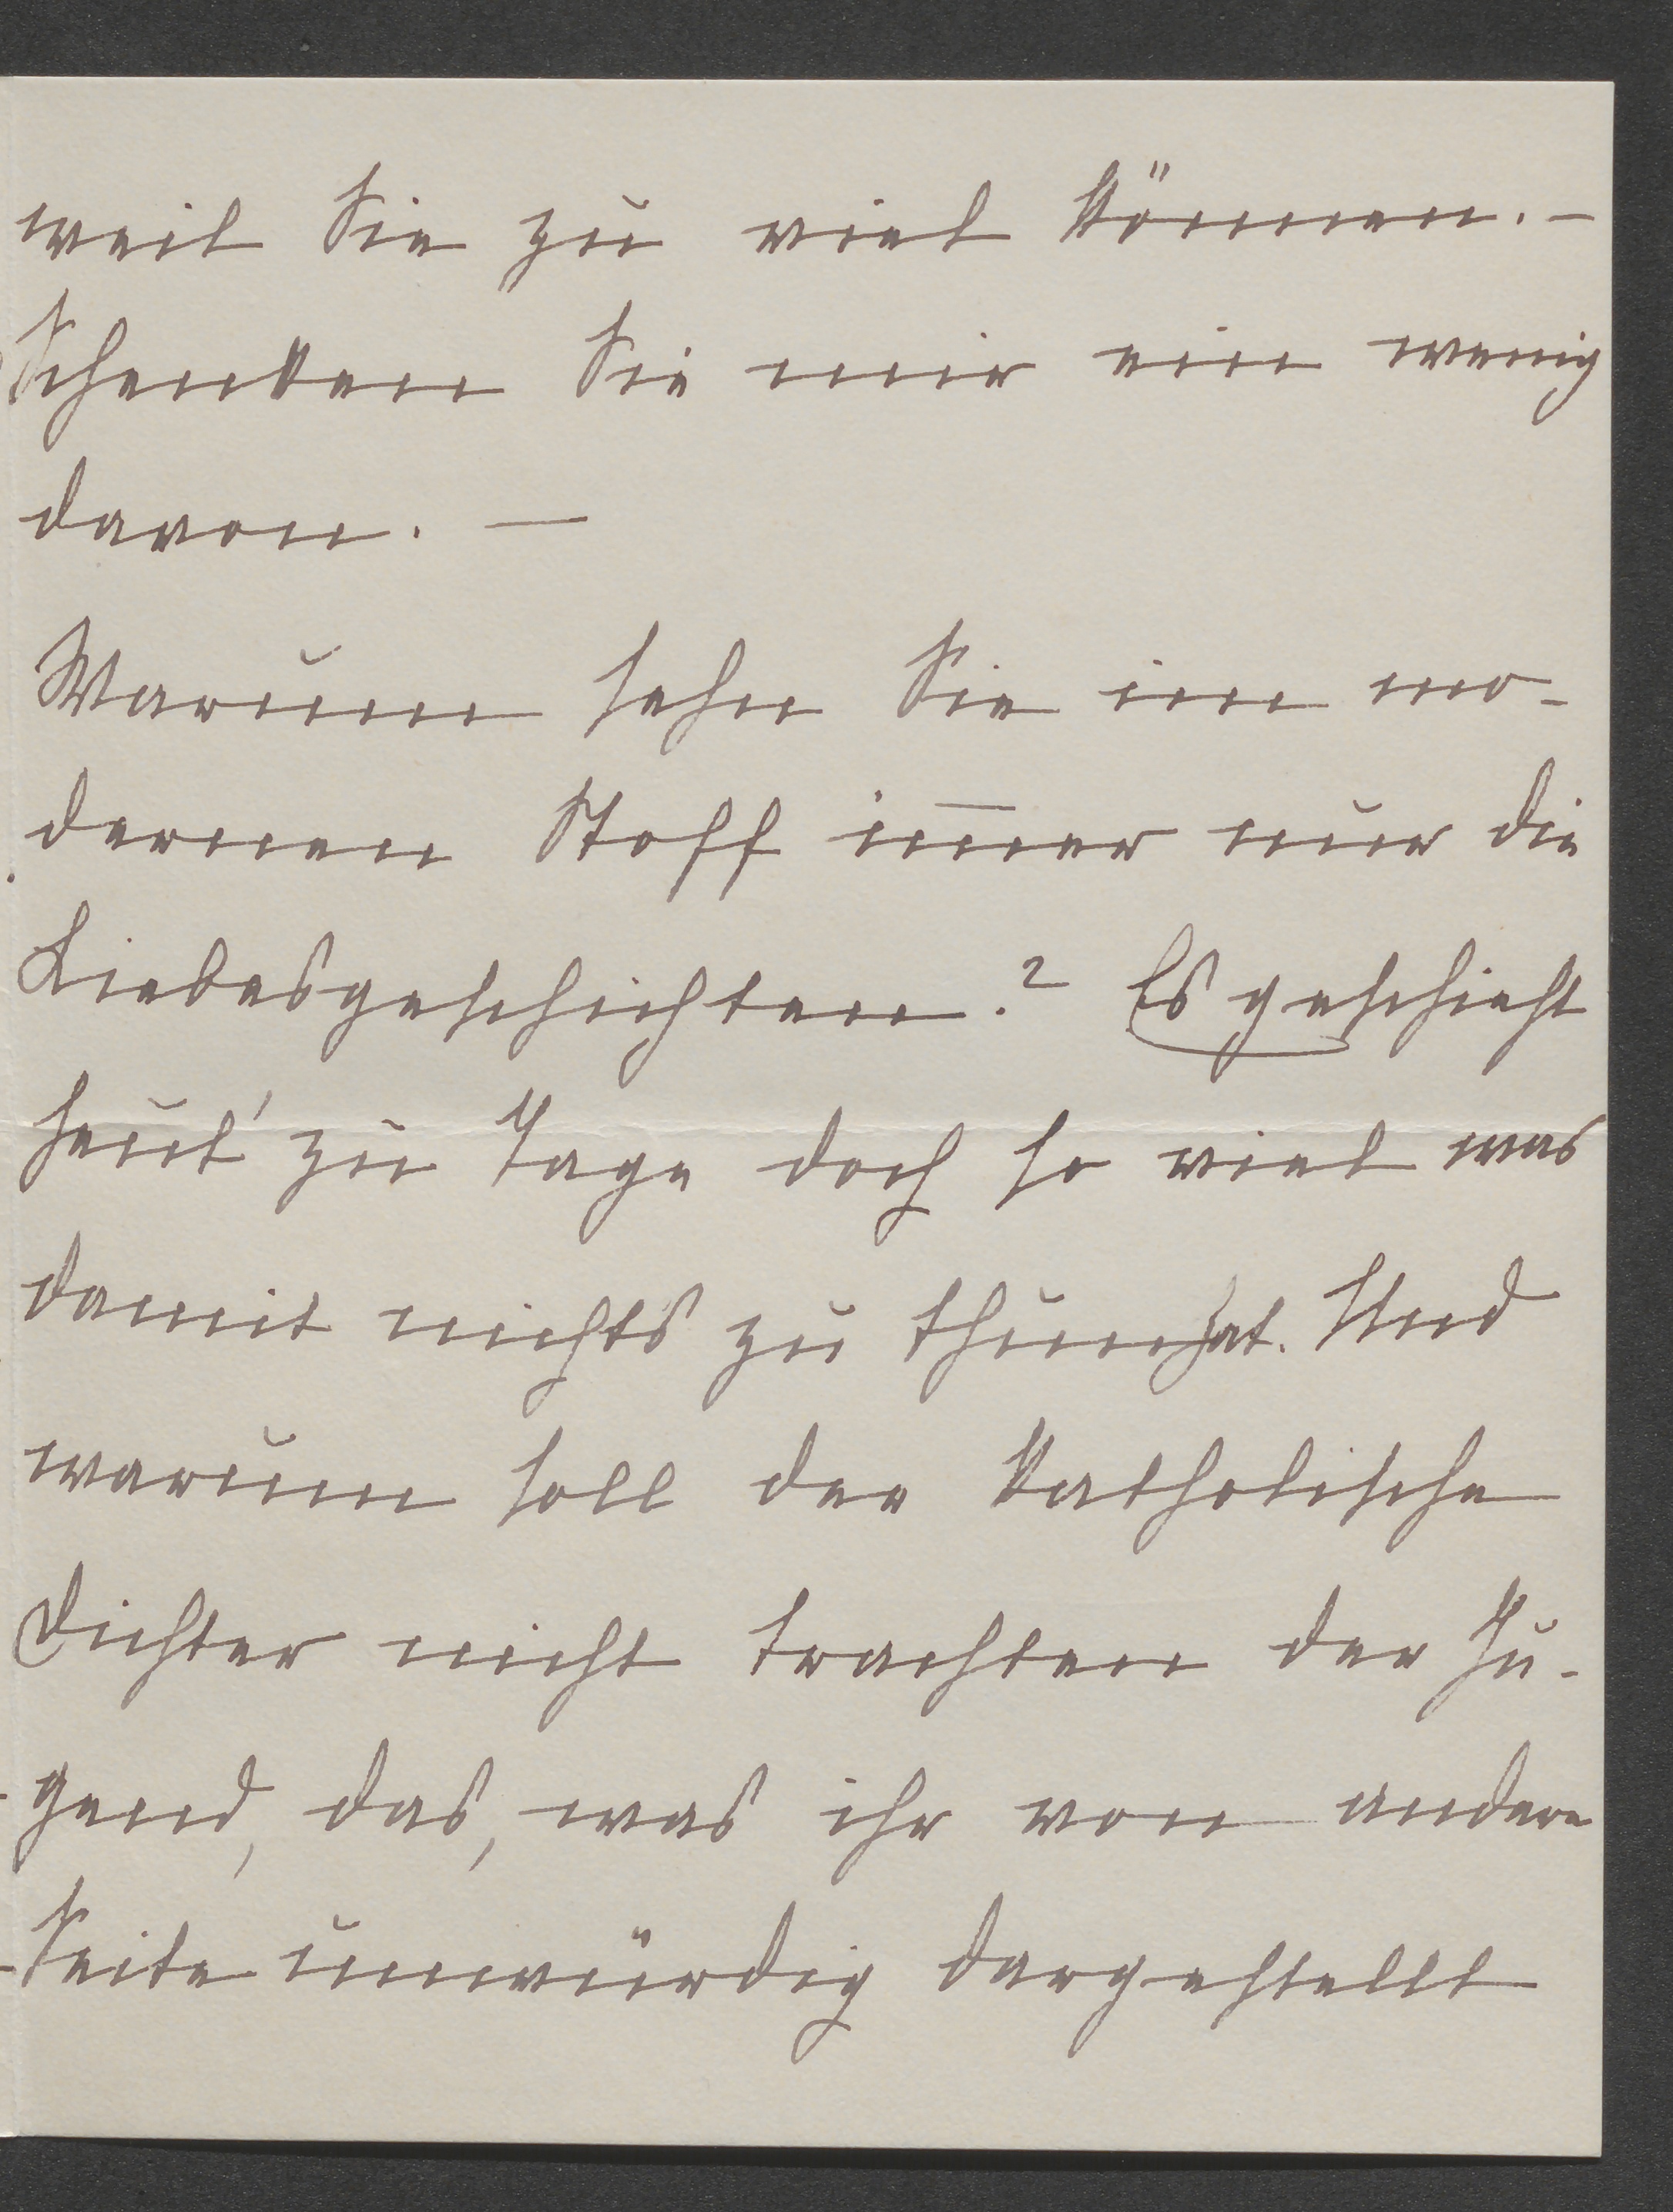 weil Sie zu viel können. –
Schenken Sie mir ein wenig
davon. —
Warum sehn Sie im mo-
dernen Stoff im̅er nur die
Liebesgeschichten.? Es geschieht
heut' zu Tage doch so viel was
damit nichts zu thun hat. Und
warum soll der katholische
Dichter nicht trachten der Ju-
gend, das, was ihr von andere
Seite unwürdig dargestellt